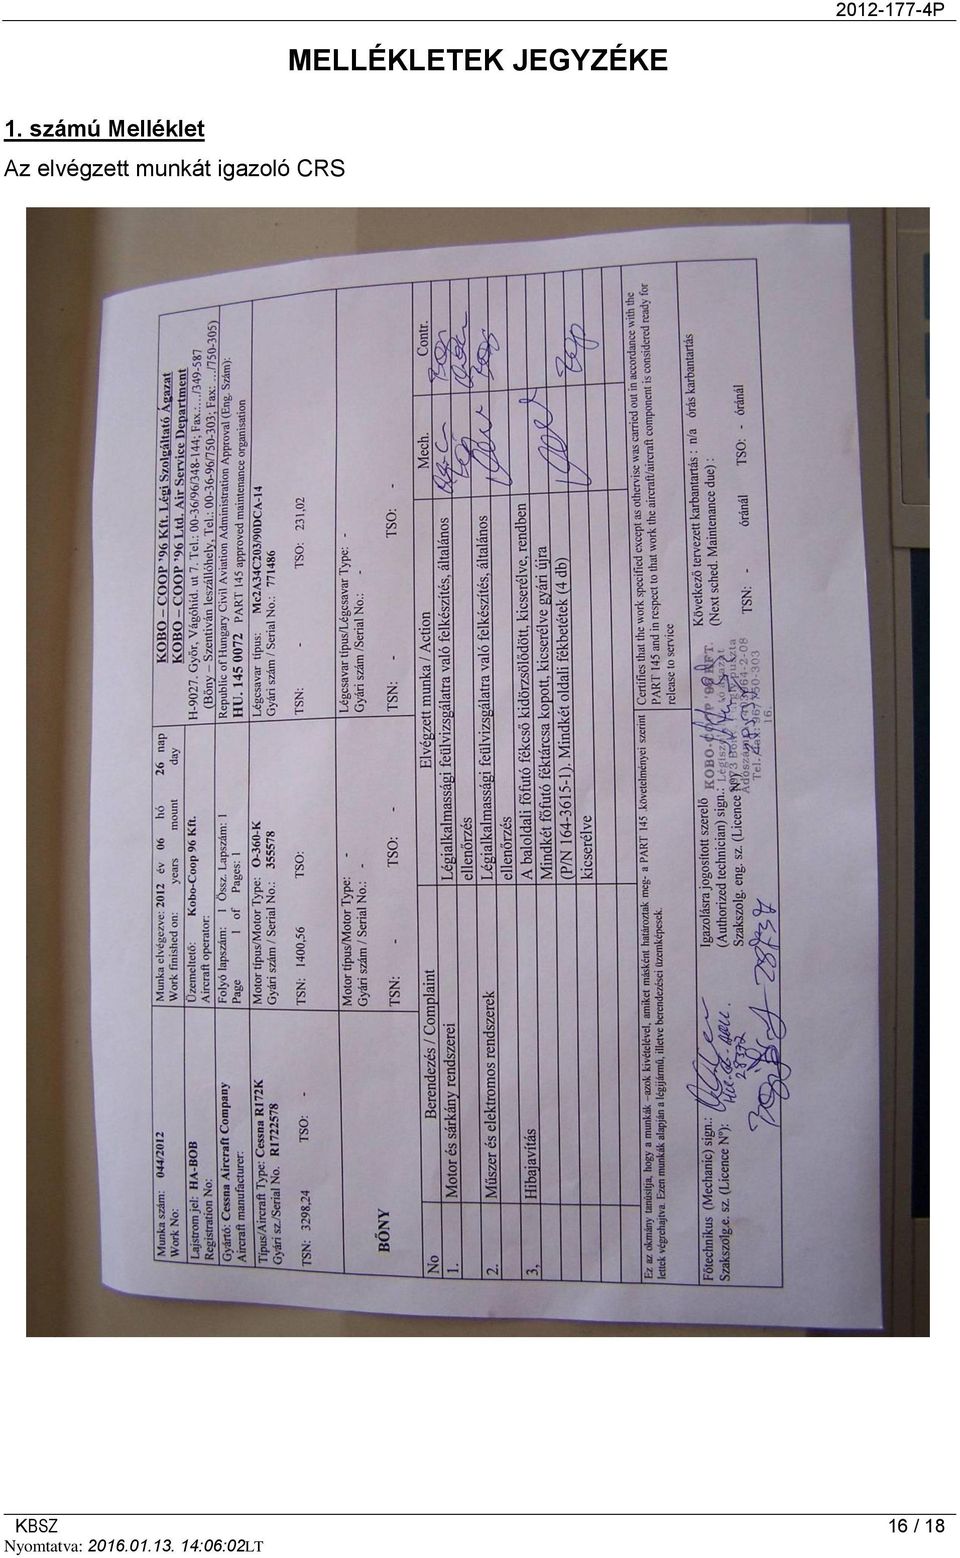 2012-177-4P
MELLÉKLETEK JEGYZÉKE
1. számú Melléklet
Az elvégzett munkát igazoló CRS
Munka szám: 044/2012
Work No:
Munka elvégezve: 2012 év 06 hó 26 nap
Work finished on: years mount day
KOBO – COOP '96 Kft. Légi Szolgáltató Ágazat
KOBO – COOP '96 Ltd. Air Service Department
Lajstrom jel: HA-BOB
Registration No:
Üzemeltető: Kobo-Coop 96 Kft.
Aircraft operator:
H-9027. Győr, Vágóhíd. ut 7. Tel.: 00-36/96/348-144; Fax.:…/349-587
(Bőny – Szentiván leszállóhely, Tel.: 00-36-96/750-303; Fax: …/750-305)
Gyártó: Cessna Aircraft Company
Aircraft manufacturer:
Folyó lapszám: 1 Össz. Lapszám: 1
Page 1 of Pages: 1
Republic of Hungary Civil Aviation Administration Approval (Eng. Szám):
HU. 145 0072 PART 145 approved maintenance organisation
Típus/Aircraft Type: Cessna R172K
Gyári sz./Serial No. R1722578
Motor típus/Motor Type: O-360-K
Gyári szám / Serial No.: 355578
Légcsavar típus: Mc2A34C203/90DCA-14
Gyári szám / Serial No.: 771486
TSN: 3298,24 TSO: -
TSN: 1400,56 TSO:
TSN: - TSO: 231,02
BŐNY
Motor típus/Motor Type: -
Gyári szám / Serial No.: -
Légcsavar típus/Légcsavar Type: -
Gyári szám /Serial No.: -
TSN: - TSO: -
TSN: - TSO: -
No Berendezés / Complaint Elvégzett munka / Action Mech. Contr.
1. Motor és sárkány rendszerei Légialkalmassági feülvizsgálatra való felkészítés, általános
ellenőrzés
2. Műszer és elektromos rendszerek Légialkalmassági feülvizsgálatra való felkészítés, általános
ellenőrzés
3, Hibajavítás A baloldali főfutó fékcső kidörzsölődött, kicserélve, rendben
Mindkét főfutó féktárcsa kopott, kicserélve gyári újra
(P/N 164-3615-1). Mindkét oldali fékbetétek (4 db)
kicserélve
Ez az okmány tanúsítja, hogy a munkák –azok kivételével, amiket másként határoztak meg- a PART 145 .követelményei szerint
lettek végrehajtva. Ezen munkák alapján a légijármű, illetve berendezései üzemképesek.
Certifies that the work specified except as othervise was carried out in accordance with the
PART 145 and in respect to that work the aircraft/aircraft component is considered ready for
release to service
Főtechnikus (Mechanic) sign.:
Szakszolg.e. sz. (Licence Nº):
28372
Igazolásra jogosított szerelő
(Authorized technician) sign.:
Szakszolg. eng. sz. (Licence Nº)
28737
KOBO-COOP '96 KFT.
Tel./Fax: 96/750-303
16.
Következő tervezett karbantartás : n/a órás karbantartás
(Next sched. Maintenance due) :
TSN: - óránál TSO: - óránál
KBSZ 16 / 18
Nyomtatva: 2016.01.13. 14:06:02LT